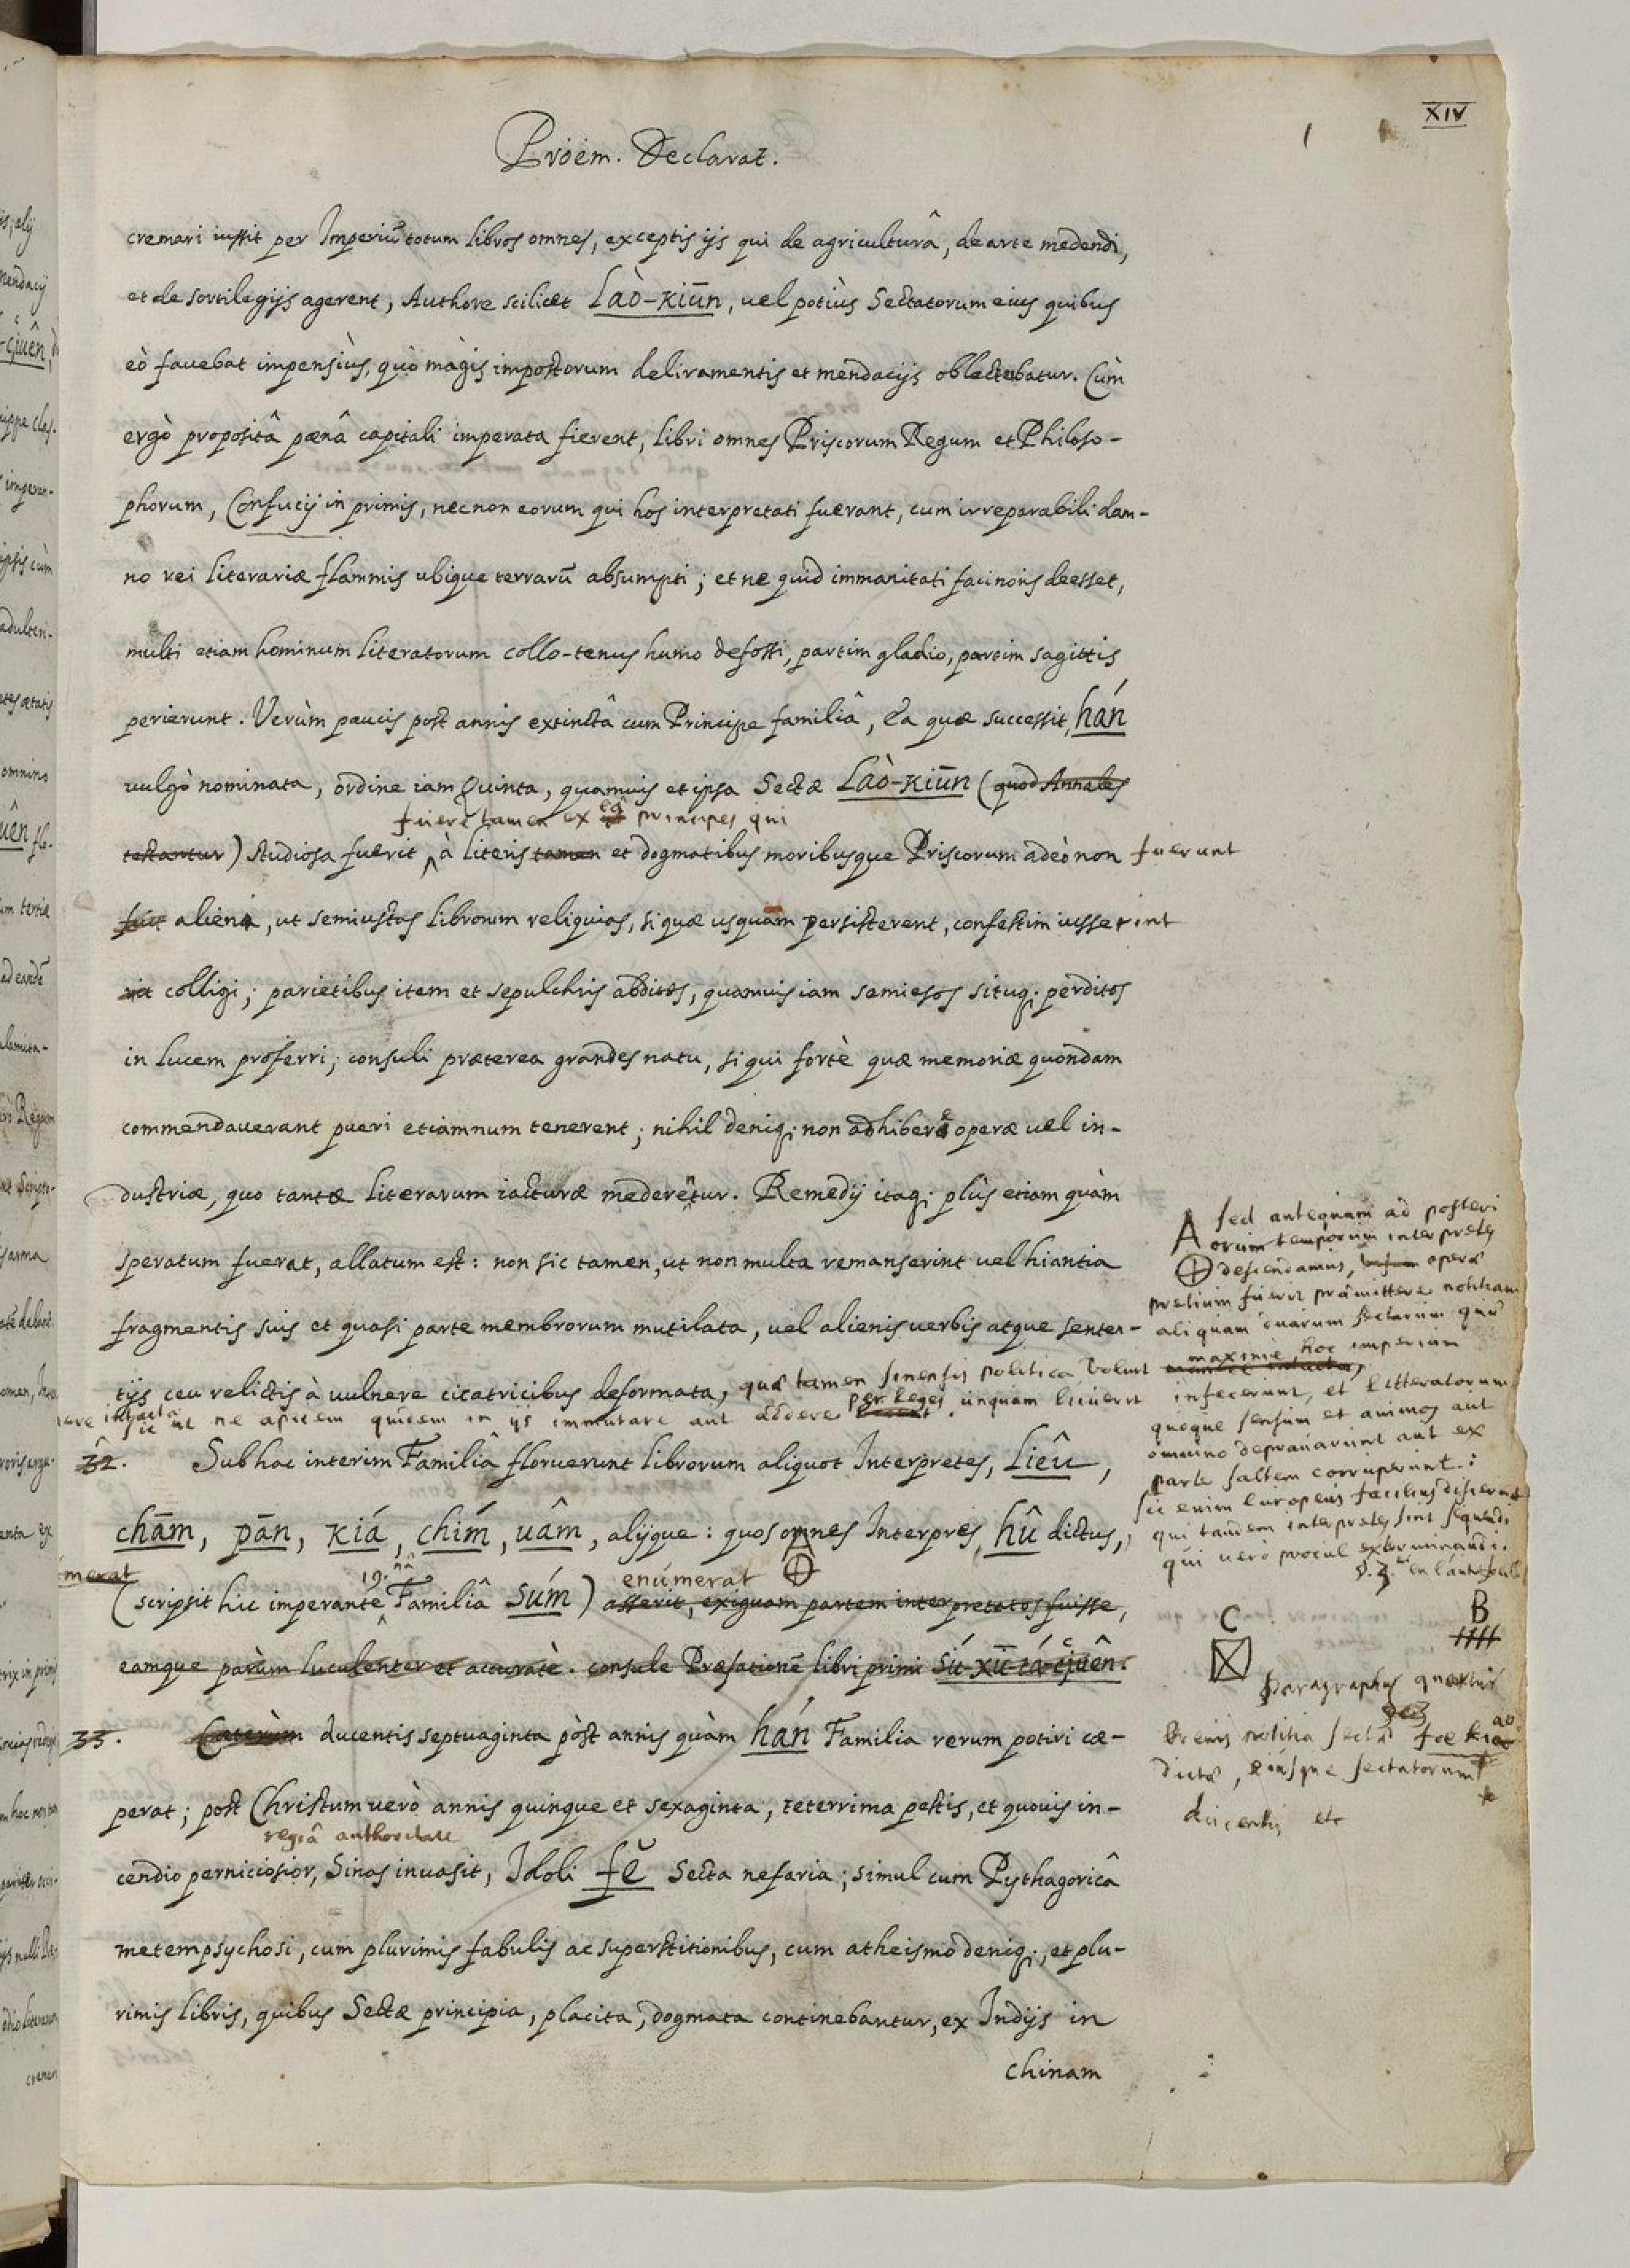 XIV
Proëm. Declarat.
cremari iussit per Imperiũ totum libros omnes, exceptis ijs qui de agriculturâ, de arte medendi,
et de sortilegijs agerent, Authore scilicet Laò-Kiūn, uel potiùs Sectatorum eius quibus
eò fauebat impensiùs, quò màgis impostorum deliramentis et mendacijs oblectabatur. Cùm
ergò propositâ pœnâ capitali imperata fierent, libri omnes Priscorum Regum et Philoso-
phorum, Confucij in primis, necnon eorum qui hos interpretati fuerant, cum irreparabili dam-
no rei literariæ flammis ubique terrarũ absumpti; et ne quid immanitati facinoris deesset,
multi etiam hominum literatorum collo-tenus humo defossi, partim gladio, partim sagittis
perierunt. Verùm paucis post annis extinctâ cum Principe familiâ, Ea quæ successit, hán
uulgò nominata, ordine iam Quinta, quamuis et ipsa Sectæ Laò-Kiūn (quod Annales
fuere tamen ex eâ principes qui
testantur) studiosa fuerit, à literis tamen et dogmatibus moribusque Priscorum adeò non fuerunt
fuit aliena, ut semiustas librorum reliquias, siquæ usquam persisterent, confestim iusserint
rit colligi; parietibus item et sepulchris abditos, quamuis iam semiesos situq; perditos
in lucem proferri; consuli præterea grandes natu, siqui fortè quæ memoriæ quondam
commendauerant pueri etiamnum tenerent; nihil deniq; non adhibere operæ uel in-
dustriæ, quo tantæ literarum iacturæ mederetur. Remedij itaq; plùs etiam quàm
speratum fuerat, allatum est: non sic tamen, ut non multa remanserint uel hiantia
fragmentis suis et quasi parte membrorum mutilata, uel alienis uerbis atque senten-
tijs ceu relictis à uulnere cicatricibus deformata, quæ tamen sinensis politica voluit
sic ut ne apicem quidem in ijs immutare aut addere per leges unquam licuerit
32. Sub hac interim Familiâ floruerunt librorum aliquot Interpretes, Liêu,
chām, pān, Kiá, chím, uâm, alijque: quos omnes Interpres, hû dictus,
merat 19.nâ enumerat
(scripsit hic imperante Familiâ Súm) asserit, exiguam partem interpretatos fuisse,
eamque parùm luculenter et accuratè. consule Præfationẽ libri primi
33. Cæterùm ducentis septuaginta pòst annis quàm hán Familia rerum potiri cœ-
perat; post Christum uerò annis quinque et sexaginta, teterrima pestis, et quouis in-
regiâ authoritate
cendio perniciosior, Sinas inuasit, Idoli fĕ Secta nefaria; simul cum Pythagoricâ
metempsychosi, cum plurimis fabulis ac superstitionibus, cum atheismo deniq; et plu-
rimis libris, quibus Sectæ principia, placita, dogmata continebantur, ex Indijs in
chinam
A sed antequam ad posteri
orum temporum interpretes
descendamus, operæ
pretium fuerit præmittere notitiam
aliquam duarum sectarum quæ
maxime hoc imperium
infecerunt, et litteratorum
quoque sensum et animos aut
omnino deprauarunt aut ex
parte saltem corruperunt:
sic enim Europæus facilius discernet
qui tandem interpretes sint sequendi
qui uero procul exterminandi.
B
C
paragraphus quartus
breuis notitia sectæ foe kiao
dictæ, eiusque sectatorum
ducentis etc